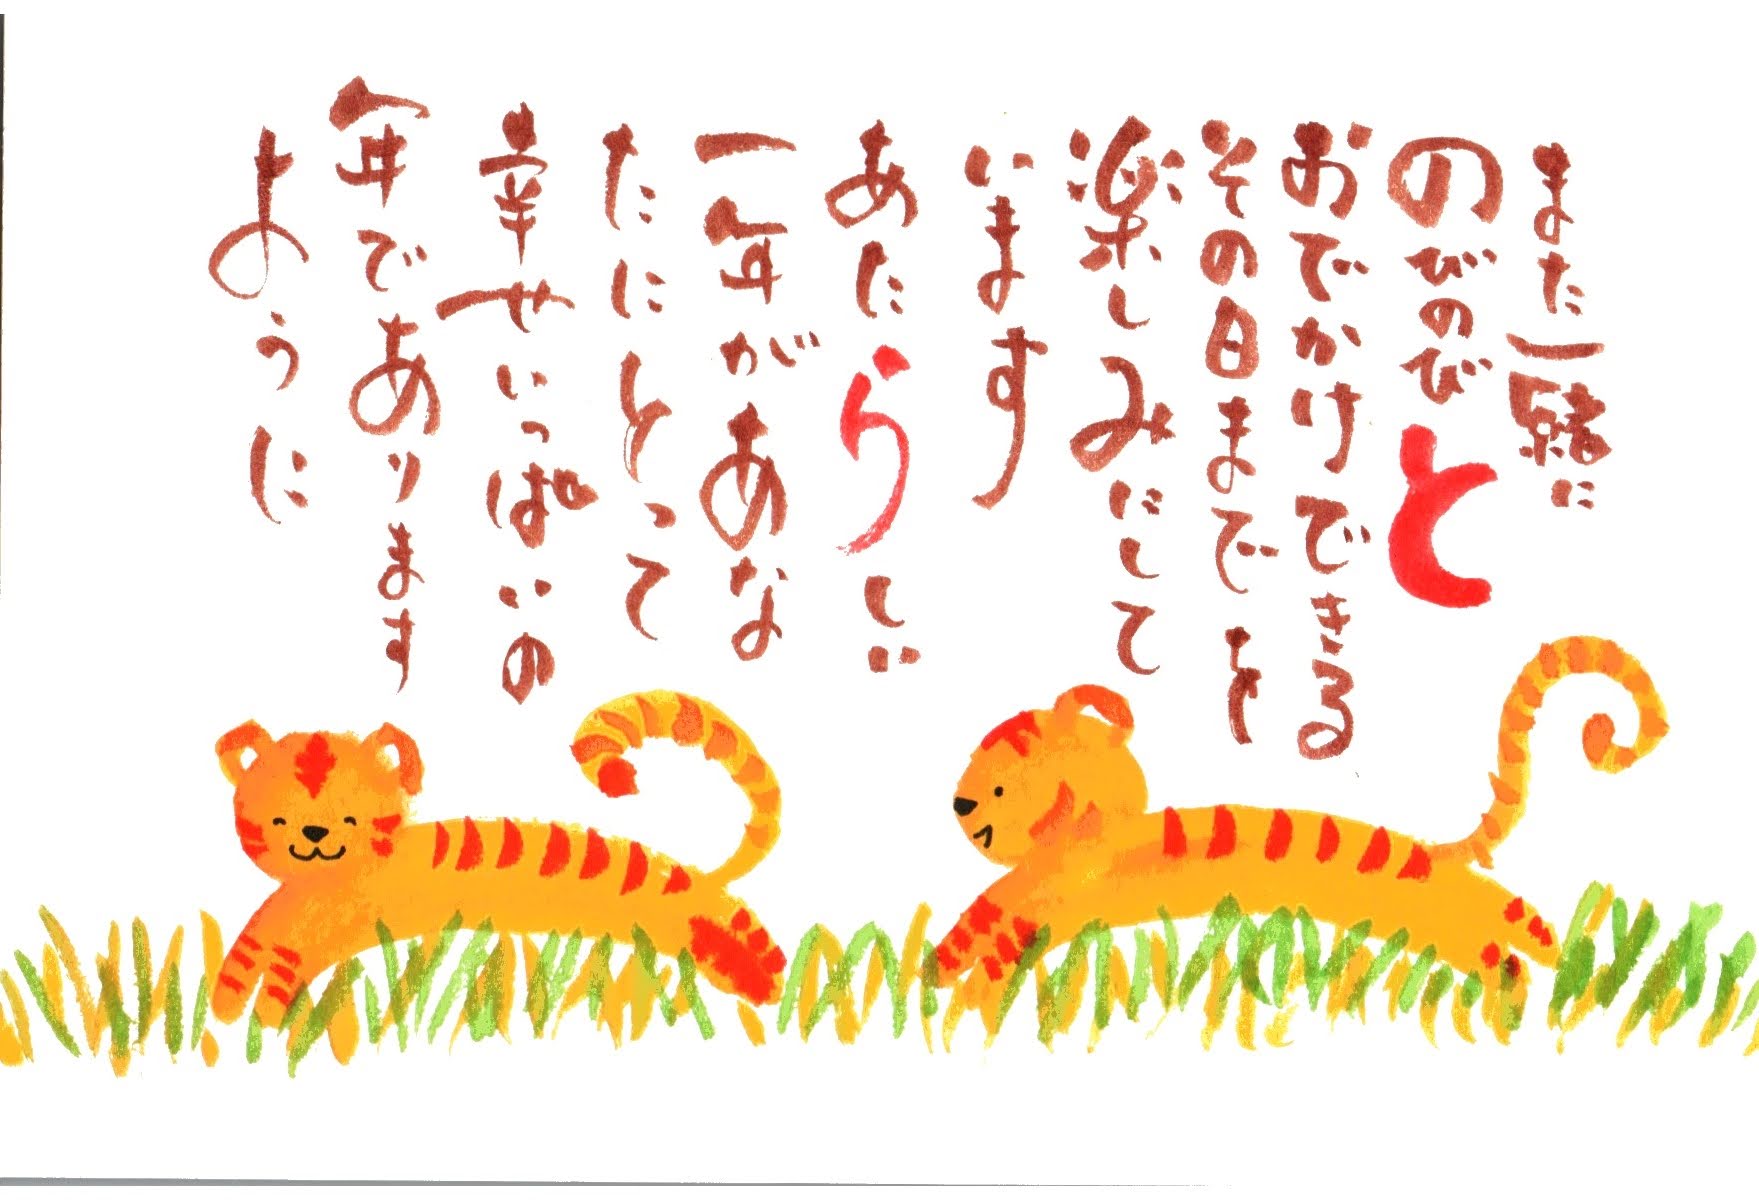 また一緒に
のびのびと
おでかけできる
その日までを
楽しみにして
います
あたらしい
一年があな
たにとって
幸せいっぱいの
年であります
ように